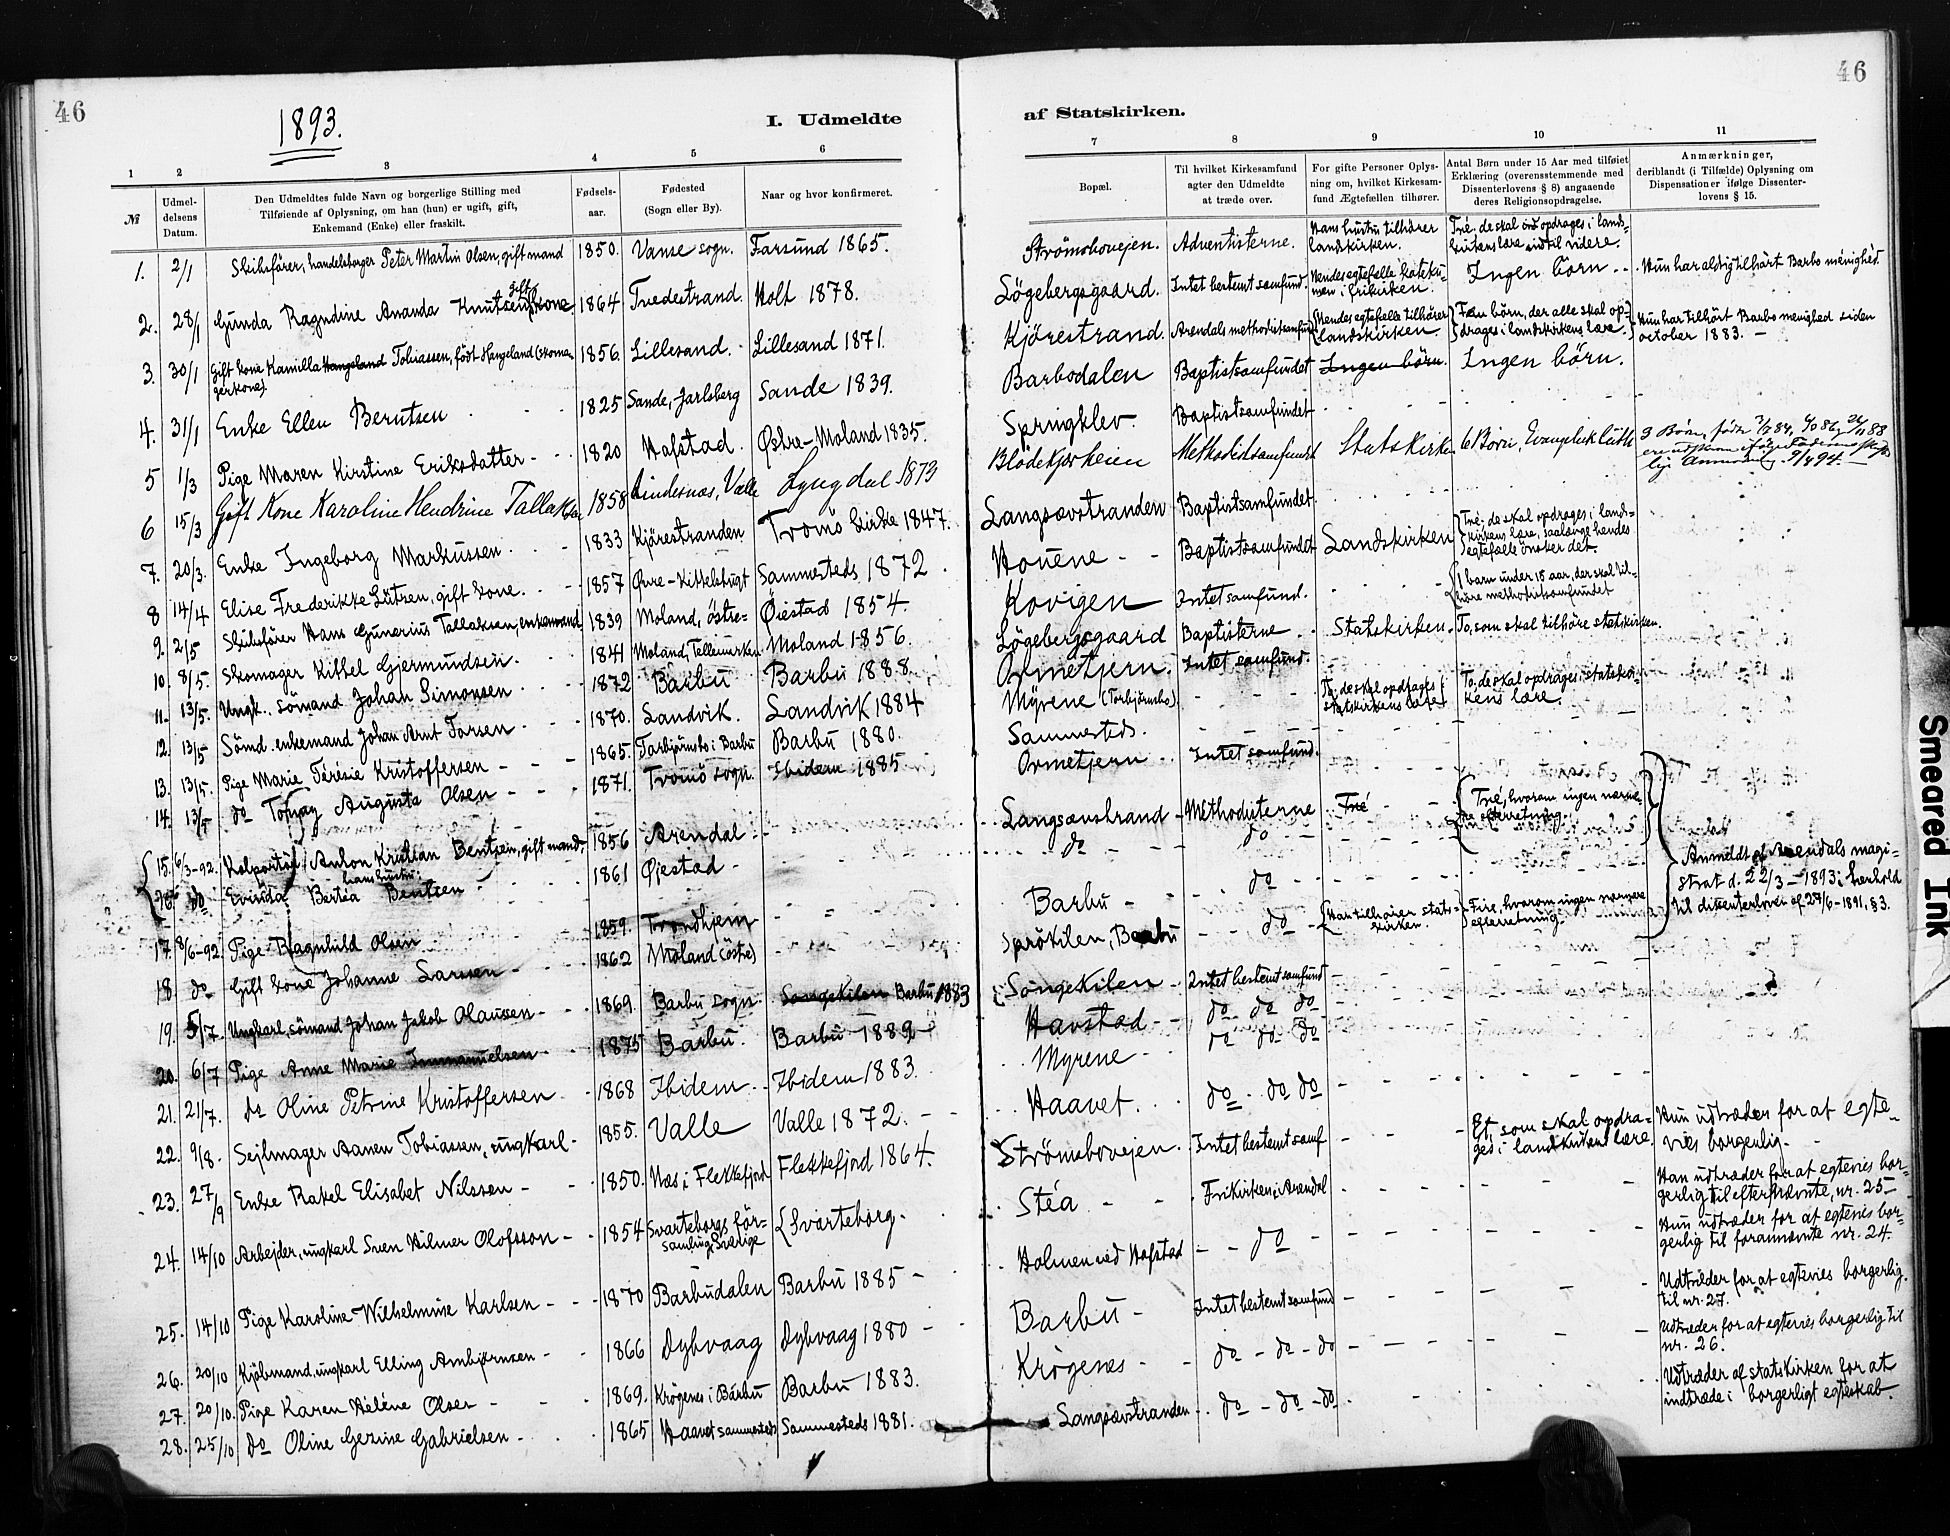 46
1893.
I. Udmeldte
1 2 3 4 5 6
№
Udmel-
delsens
Datum.
Den Udmeldtes fulde Navn og borgerlige Stilling med
Tilføiende af Oplysning, om han (hun) er ugift, gift,
Enkemand (Enke) eller fraskilt.
Fødsels-
aar.
Fødested
(Sogn eller By).
Naar og hvor konfirmeret.
1. 2/1 Skibsfører, handelsborger Peter Martin Olsen, gift mand 1850. Vanse sogn. Farsund 1865.
2. 28/1 Gunda Ragndine Ananda Knutsen, gift kone 1864 Tvedestrand. Holt 1878.
3. 30/1 Gift kone Kamilla Hangeland Tobiassen, født Hangeland (skoma- 1856. Lillesand. Lillesand 1871.
gerkone)
4. 31/1 Enke Ellen Berntsen 1825 Sande, Jarlsberg Sande 1839.
5 1/3 Pige Maren Kirstine Eriksdatter 1820 Hafstad. Østre-Moland 1835.
6 15/3 Gift Kone Karoline Hendrine Tallaksen 1858 Lindesnæs, Valle Lyngdal 1873
7. 20/3. Enke Ingeborg Markussen 1833 Kjörestranden Tromö kirke 1847.
8 14/4 Elise Frederikke Lütren, gift kone. 1857 Øvre-Kittelsbugt Sammesteds 1872
9. 2/5 Skibsfører Hans Gunerius Tallaksen, enkemand 1839 Moland, östre= Øiestad 1854.
10. 8/5. Skomager Kittel Gjermundsen. 1841 Moland, Tellemarken Moland 1856.
11. 13/5. Ungk. sömand Johan Simonsen 1872 Barbu Barbu 1888.
12. 13/5 Sömd. enkemand Johan Arnt Torsen 1870. Sandvik. Sandvik 1884
13. 13/5. Pige Marie Térésie Kristoffersen 1865. Torbjörnsbo i Barbu Barbu 1880.
14. 13/5 do Tomay Augusta Olsen 1871. Tromö sogn. Ibidem 1885
15. 6/3-92. Kolportør Anton Kristian Bentzen, gift mand. 1856 Arendal
hans hustru:
16. do Evinda Bertéa Bentzen 1861 Øjestad
17. 8/6-92. Pige Ragnhild Olsen 1859. Trondhjem
18 do Gift kone Johanne Larssen 1862 Moland (östre)
19. 5/7. Ungkarl, sömand Johan Jakob Olaussen 1869. Barbu sogn Songekilen Barbu 1883
20. 6/7 Pige Anne Marie Immanuelsen 1875 Barbu. Barbu 1889
21. 21/7. do Oline Petrine Kristoffersen 1868 Ibidem Ibidem 1883.
22. 9/8. Sejlmager Aanen Tobiassen, ungkarl 1855. Valle Valle 1872.
23. 27/9 Enke Rakel Elisabet Nilssen 1850. Næs i Flekkefjord Flekkefjord 1864.
24. 14/10 Arbejder, ungkarl Sven Hilmer Olofsson 1854 Svarteborgs för- Svarteborg.
samling, Sverige
25. 14/10 Pige Karoline Wilhelmine Karlsen 1870 Barbudalen Barbu 1885
26. 20/10 Kjöbmand, ungkarl Elling Ambjørnsen 1866 Dybvaag Dybvaag 1880
27. 20/10. Pige Karen Heléne Olsen 1869. Krögenes i Barbu Barbu 1883.
28. 25/10 do Oline Gezine Gabrielsen 1865 Haavet sammesteds Sammesteds 1881.
46
af Statskirken.
7 8 9 10 11
Bopæl.
Til hvilket Kirkesamfund
agter den Udmeldte
at træde over.
For gifte Personer Oplys-
ning om, hvilket Kirkesam-
fund Ægtefællen tilhører.
Antal Børn under 15 Aar med tilføiet
Erklæring (overensstemmende med
Dissenterlovens § 8) angaaende
deres Religionsopdragelse.
Anmærkninger,
deriblandt (i Tilfælde) Oplysning om
Dispensationer ifølge Dissenter-
lovens § 15.
Strömsbovejen. Adventisterne. Hans hustru tilhörer landskirken. Tré, de skal opdrages i lands- kirkens lære indtil videre.
Lögebergsgaard. Intet bestemt samfund. Hendes egtefelle kateku- men i frikirken. Ingen börn Hun har aldrig tilhört Barbo menighed.
Kjörestrand. Arendals methodistsamfund Hendes egtefelle tilhörer landskirken Fem börn, der alle skal op- drages i landskirkens lære. Hun har tilhört Barbo menighed siden october 1883.
Barbodalen Baptistsamfundet Ingen börn. Ingen börn.
Springklev. Baptistsamfundet
Blödekjærheien Methodistsamfundet Statskirken 6 Börn, Evangelisk luth 3 Børn, født
Langsævstranden Baptistsamfundet
Houene Baptistsamfundet Landskirken Tré, de skal opdrages i lands- kirkens lære, saalænge hendes egtefælle önsker det.
Kovigen Intet samfund. 1 barn under 15 aar, der skal til- höre methodistsamfundet
Lögebergsgaard Baptisterne Statskirken. To, som skal tilhöre statskirken.
Ormetjern. Intet samfund.
Myrene (Torbjörnsbo). To, de skal opdrages i statskirkens lære To, de skal opdrages i statskir- kens lære.
Sammesteds.
Ormetjern Intet samfund.
Langsævstrand Methodisterne Tré Tré, hvorom ingen nærme- re efterretning.
do do
Barbu do
Sprökilen, Barbu do Han tilhører stats- kirken. Fire, hvorom ingen nærmere efterretning.
Anmeldt af Arendals magi-
strat d. 22/3-1893 i henhold
til dissenterloven af 27/6-1891, § 3.
Songekilen Intet bestemt samfund
Havstad do do do
Myrene do do do
Haavet. do do do
Strömsbovejen. Intet bestemt samf Et som skal opdra- ges i landskirkens lære Hun udtræder for at egte- vies borgerlig.
Stéa Frikirken i Arendal Han udtræder for at egtevies bor- gerlig til efternævnte, nr. 25
Holmen ved Hafstad do Hun udtræder for at egtevies bor- gerlig til forannævnte nr. 24.
Barbu Intet bestemt samfund Udtræder for at egtevies borgerlig. til nr. 27.
Krögenes do do do Udtræder for at egtevies borgerlig til nr. 26.
Langsævstranden do do do Udtræder af statskirken for at indtræde i borgerligt egteskab.
Smeared Ink